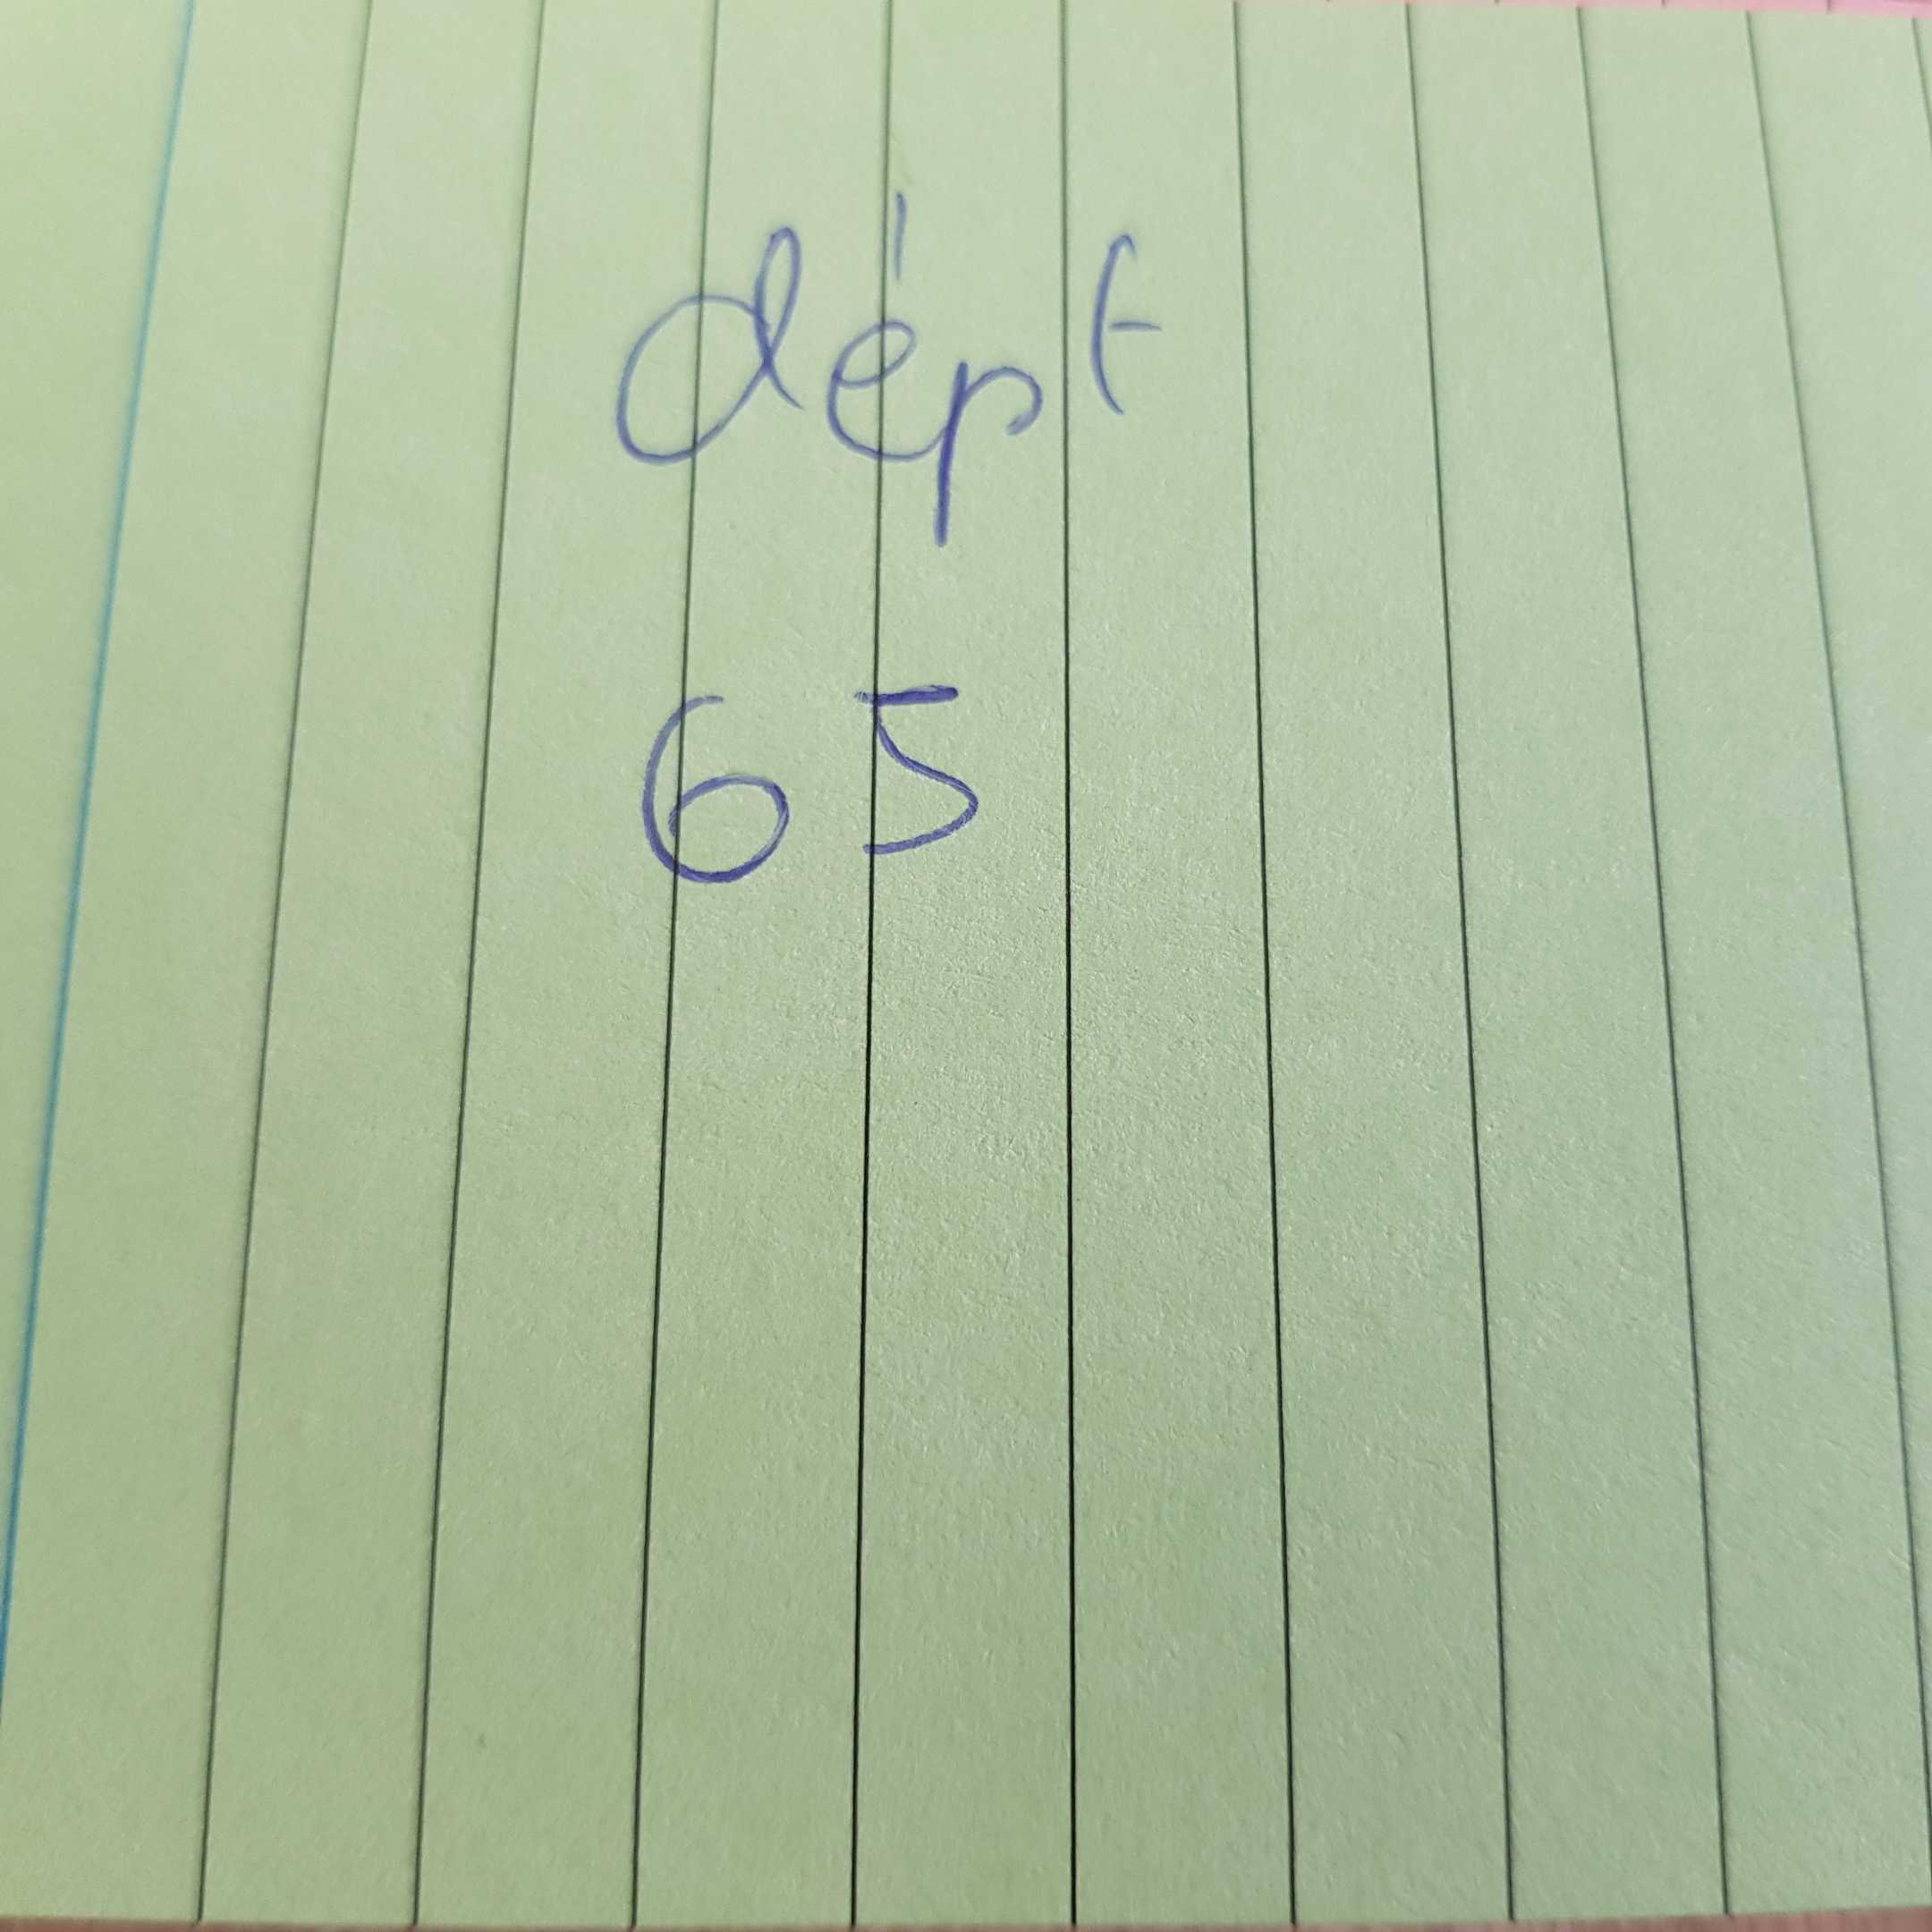 dépt
65